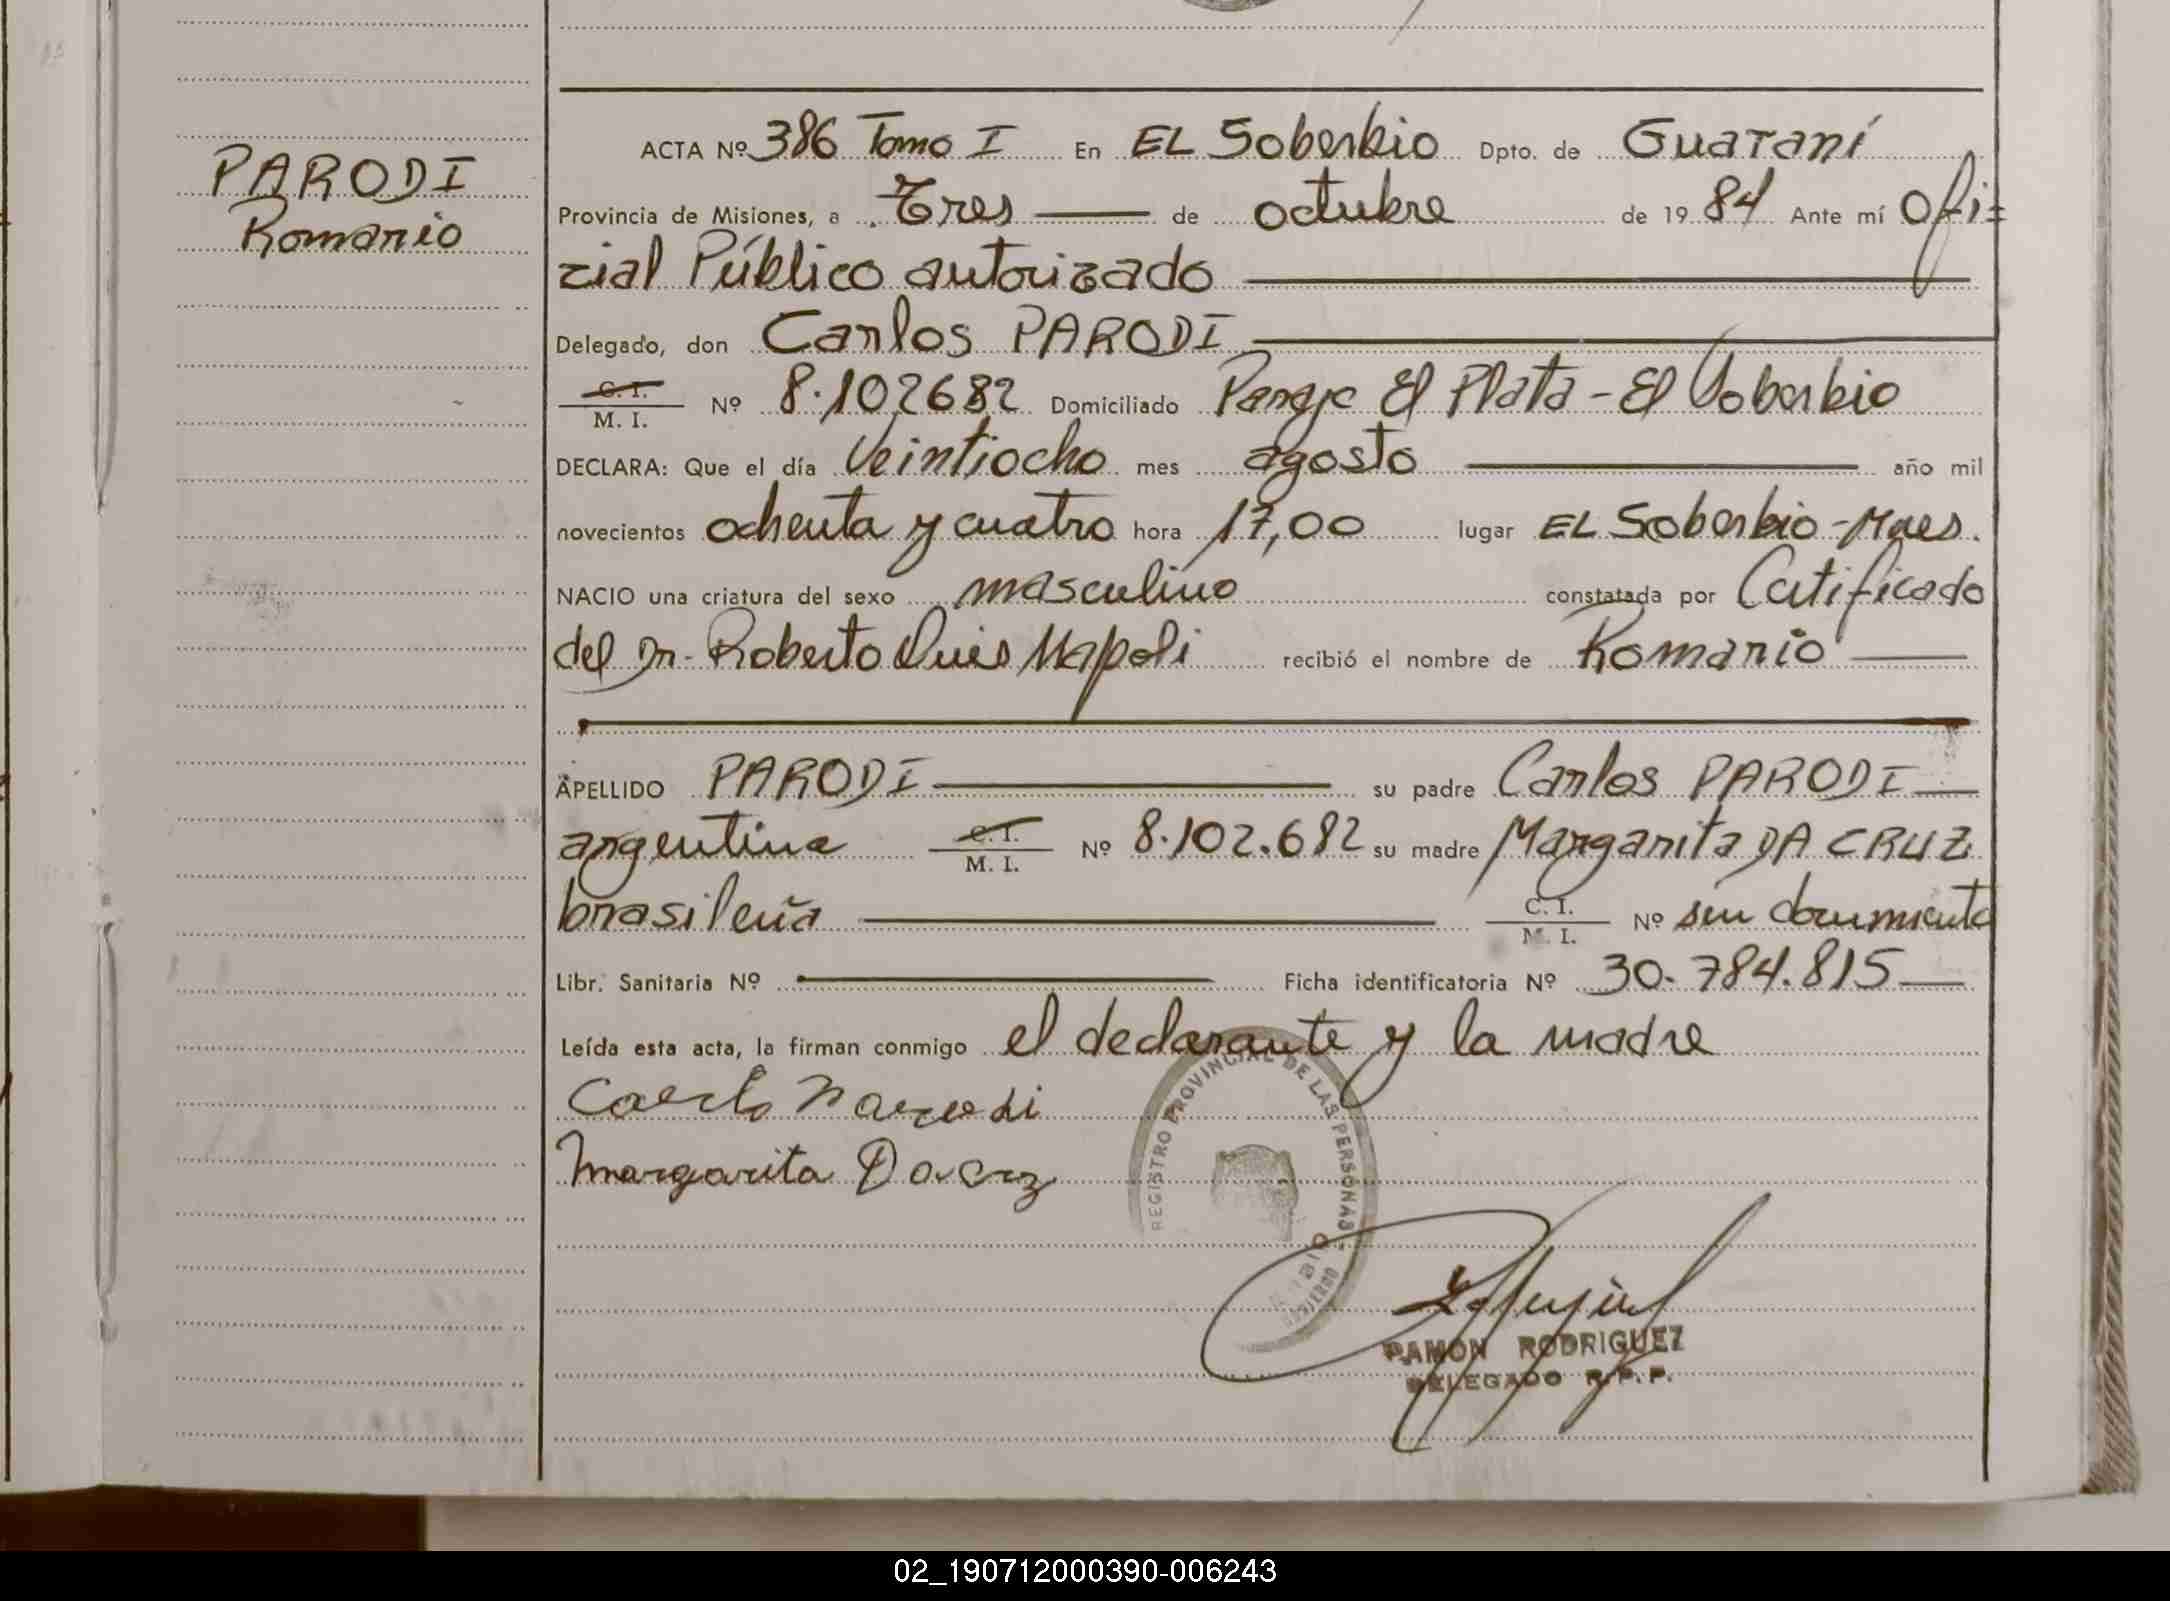 PARODI
Romanio
ACTA Nº 386 Tomo I En EL Soberbio Dpto. de Guaraní
Provincia de Misiones, a Tres de octubre de 19 84 Ante mí Ofi=
cial Público autorizado
Delegado, don Carlos PARODI
C. I.
M. I. Nº 8.102682 Domiciliado Paraje El Plata - El Soberbio
DECLARA: Que el día Veintiocho mes agosto año mil
novecientos ochenta y cuatro hora 17,00 lugar EL Soberbio - Mnes.
NACIO una criatura del sexo masculino constatada por Certificado
del Dr. Roberto Luis Napoli recibió el nombre de Romanio
APELLIDO PARODI su padre Carlos PARODI
argentina C. I. M. I. Nº 8.102.682 su madre Margarita DA CRUZ
brasileña C. I. M. I. Nº sin documento
Libr. Sanitaria Nº Ficha identificatoria Nº 30.784.815
Leída esta acta, la firman conmigo el declarante y la madre
Carlo Parodi
Margarita Da Cruz
REGISTRO PROVINCIAL DE LAS PERSONAS
RAMON RODRIGUEZ
DELEGADO R.P.P.
02_190712000390-006243